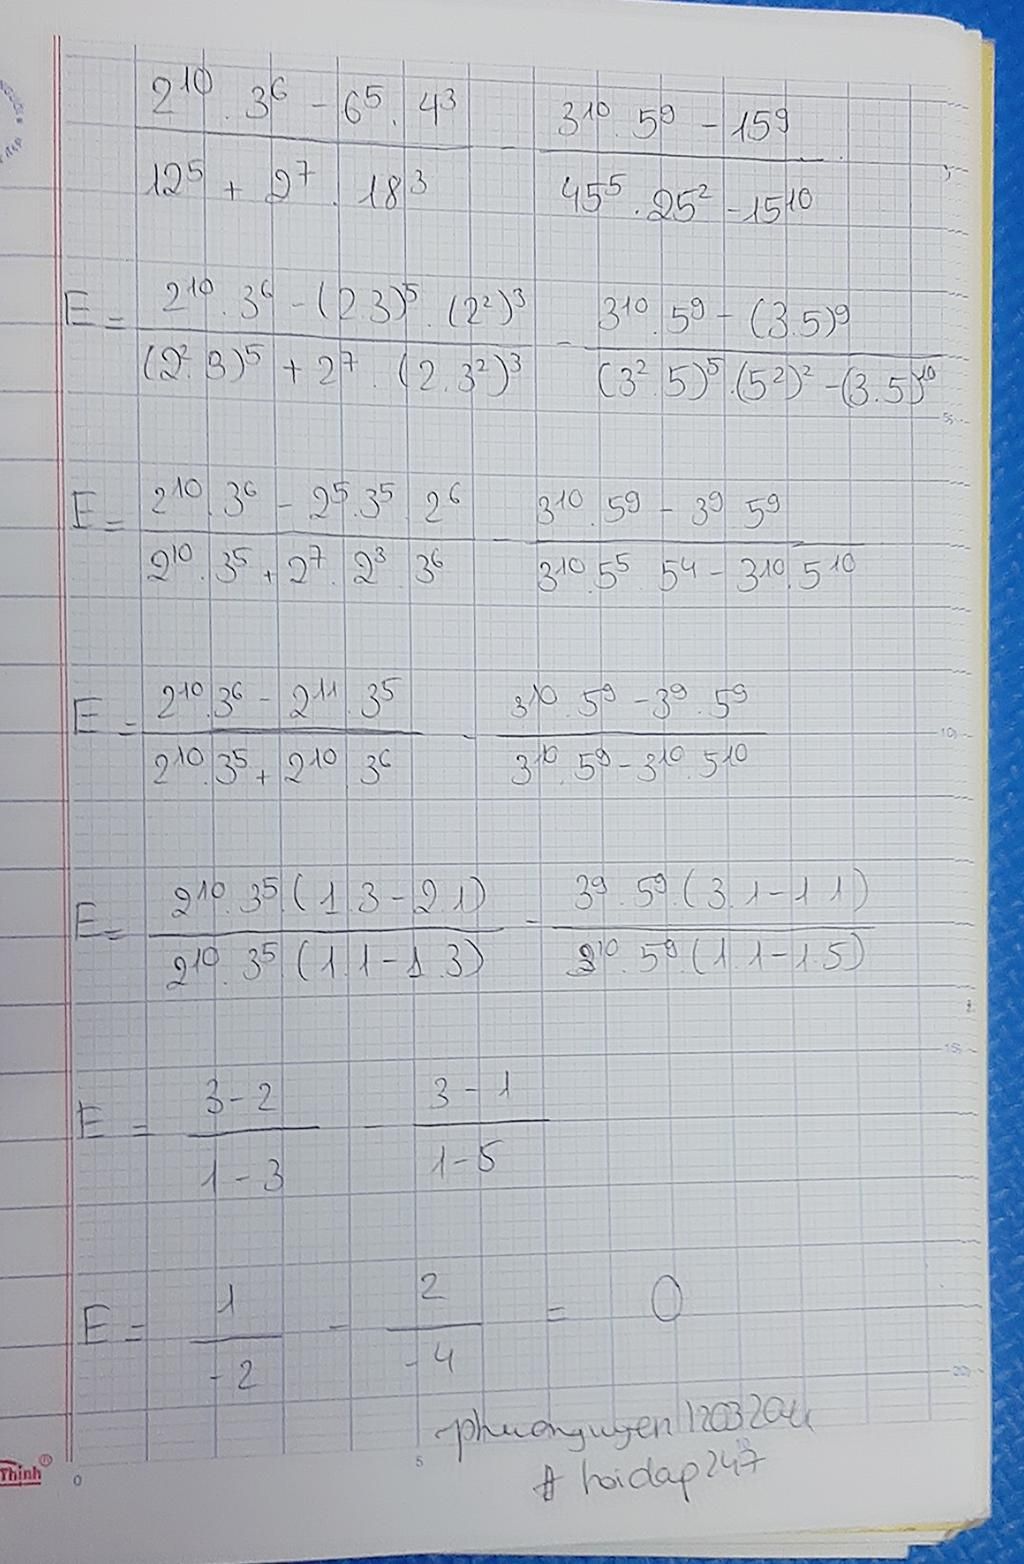 2¹⁰ . 3⁶ - 6⁵ . 4³ / 12⁵ + 2⁷ . 18³ - 3¹⁰ . 5⁹ - 15⁹ / 45⁵ . 25² - 15¹⁰
E = 2¹⁰ . 3⁶ - (2.3)⁵ . (2²)³ / (2² . 3)⁵ + 2⁷ . (2 . 3²)³ - 3¹⁰ . 5⁹ - (3.5)⁹ / (3² 5)⁵ . (5²)² - (3.5)¹⁰
E = 2¹⁰ . 3⁶ - 2⁵ . 3⁵ 2⁶ / 2¹⁰ . 3⁵ + 2⁷ . 2³ 3⁶ - 3¹⁰ . 5⁹ - 3⁹ 5⁹ / 3¹⁰ . 5⁵ 5⁴ - 3¹⁰ . 5¹⁰
E = 2¹⁰ . 3⁶ - 2¹¹ . 3⁵ / 2¹⁰ . 3⁵ + 2¹⁰ 3⁶ - 3¹⁰ . 5⁹ - 3⁹ . 5⁹ / 3¹⁰ . 5⁹ - 3¹⁰ . 5¹⁰
E = 2¹⁰ . 3⁵ (1 3 - 2 1) / 2¹⁰ . 3⁵ (1 1 - 1 3) - 3⁹ . 5⁹ . (3 . 1 - 1 1) / 3¹⁰ . 5⁹ . (1 . 1 - 1 . 5)
E = 3 - 2 / 1 - 3 - 3 - 1 / 1 - 5
E = 1 / -2 - 2 / -4 = 0
# hoidap247
Thịnh®
0
5
5
10
15
20